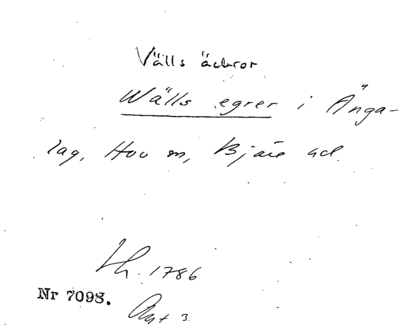 Välls äckror
Wälls egrer i Änga-
lag, Hov sn, Bjäre hd.
Lh. 1786
Nr 7093.
Akt 3.